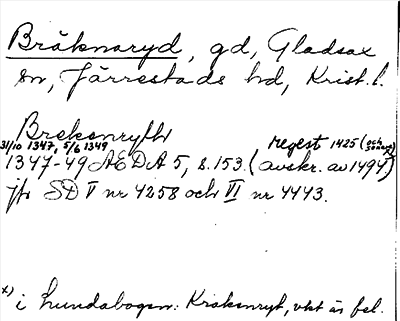 Bräknaryd, gd, Gladsax
sn, Järrestads hd, Krist. l.
Breksnrythr
31/10 1347, 5/6 1349 regest 1425 (och
1347-49 AEDA 5, s. 153. (avskr. av 1494)
jfr SD V nr 4258 och VI nr 4443.
x) i Lundabogen: Kraksnryt, vkt är fel.